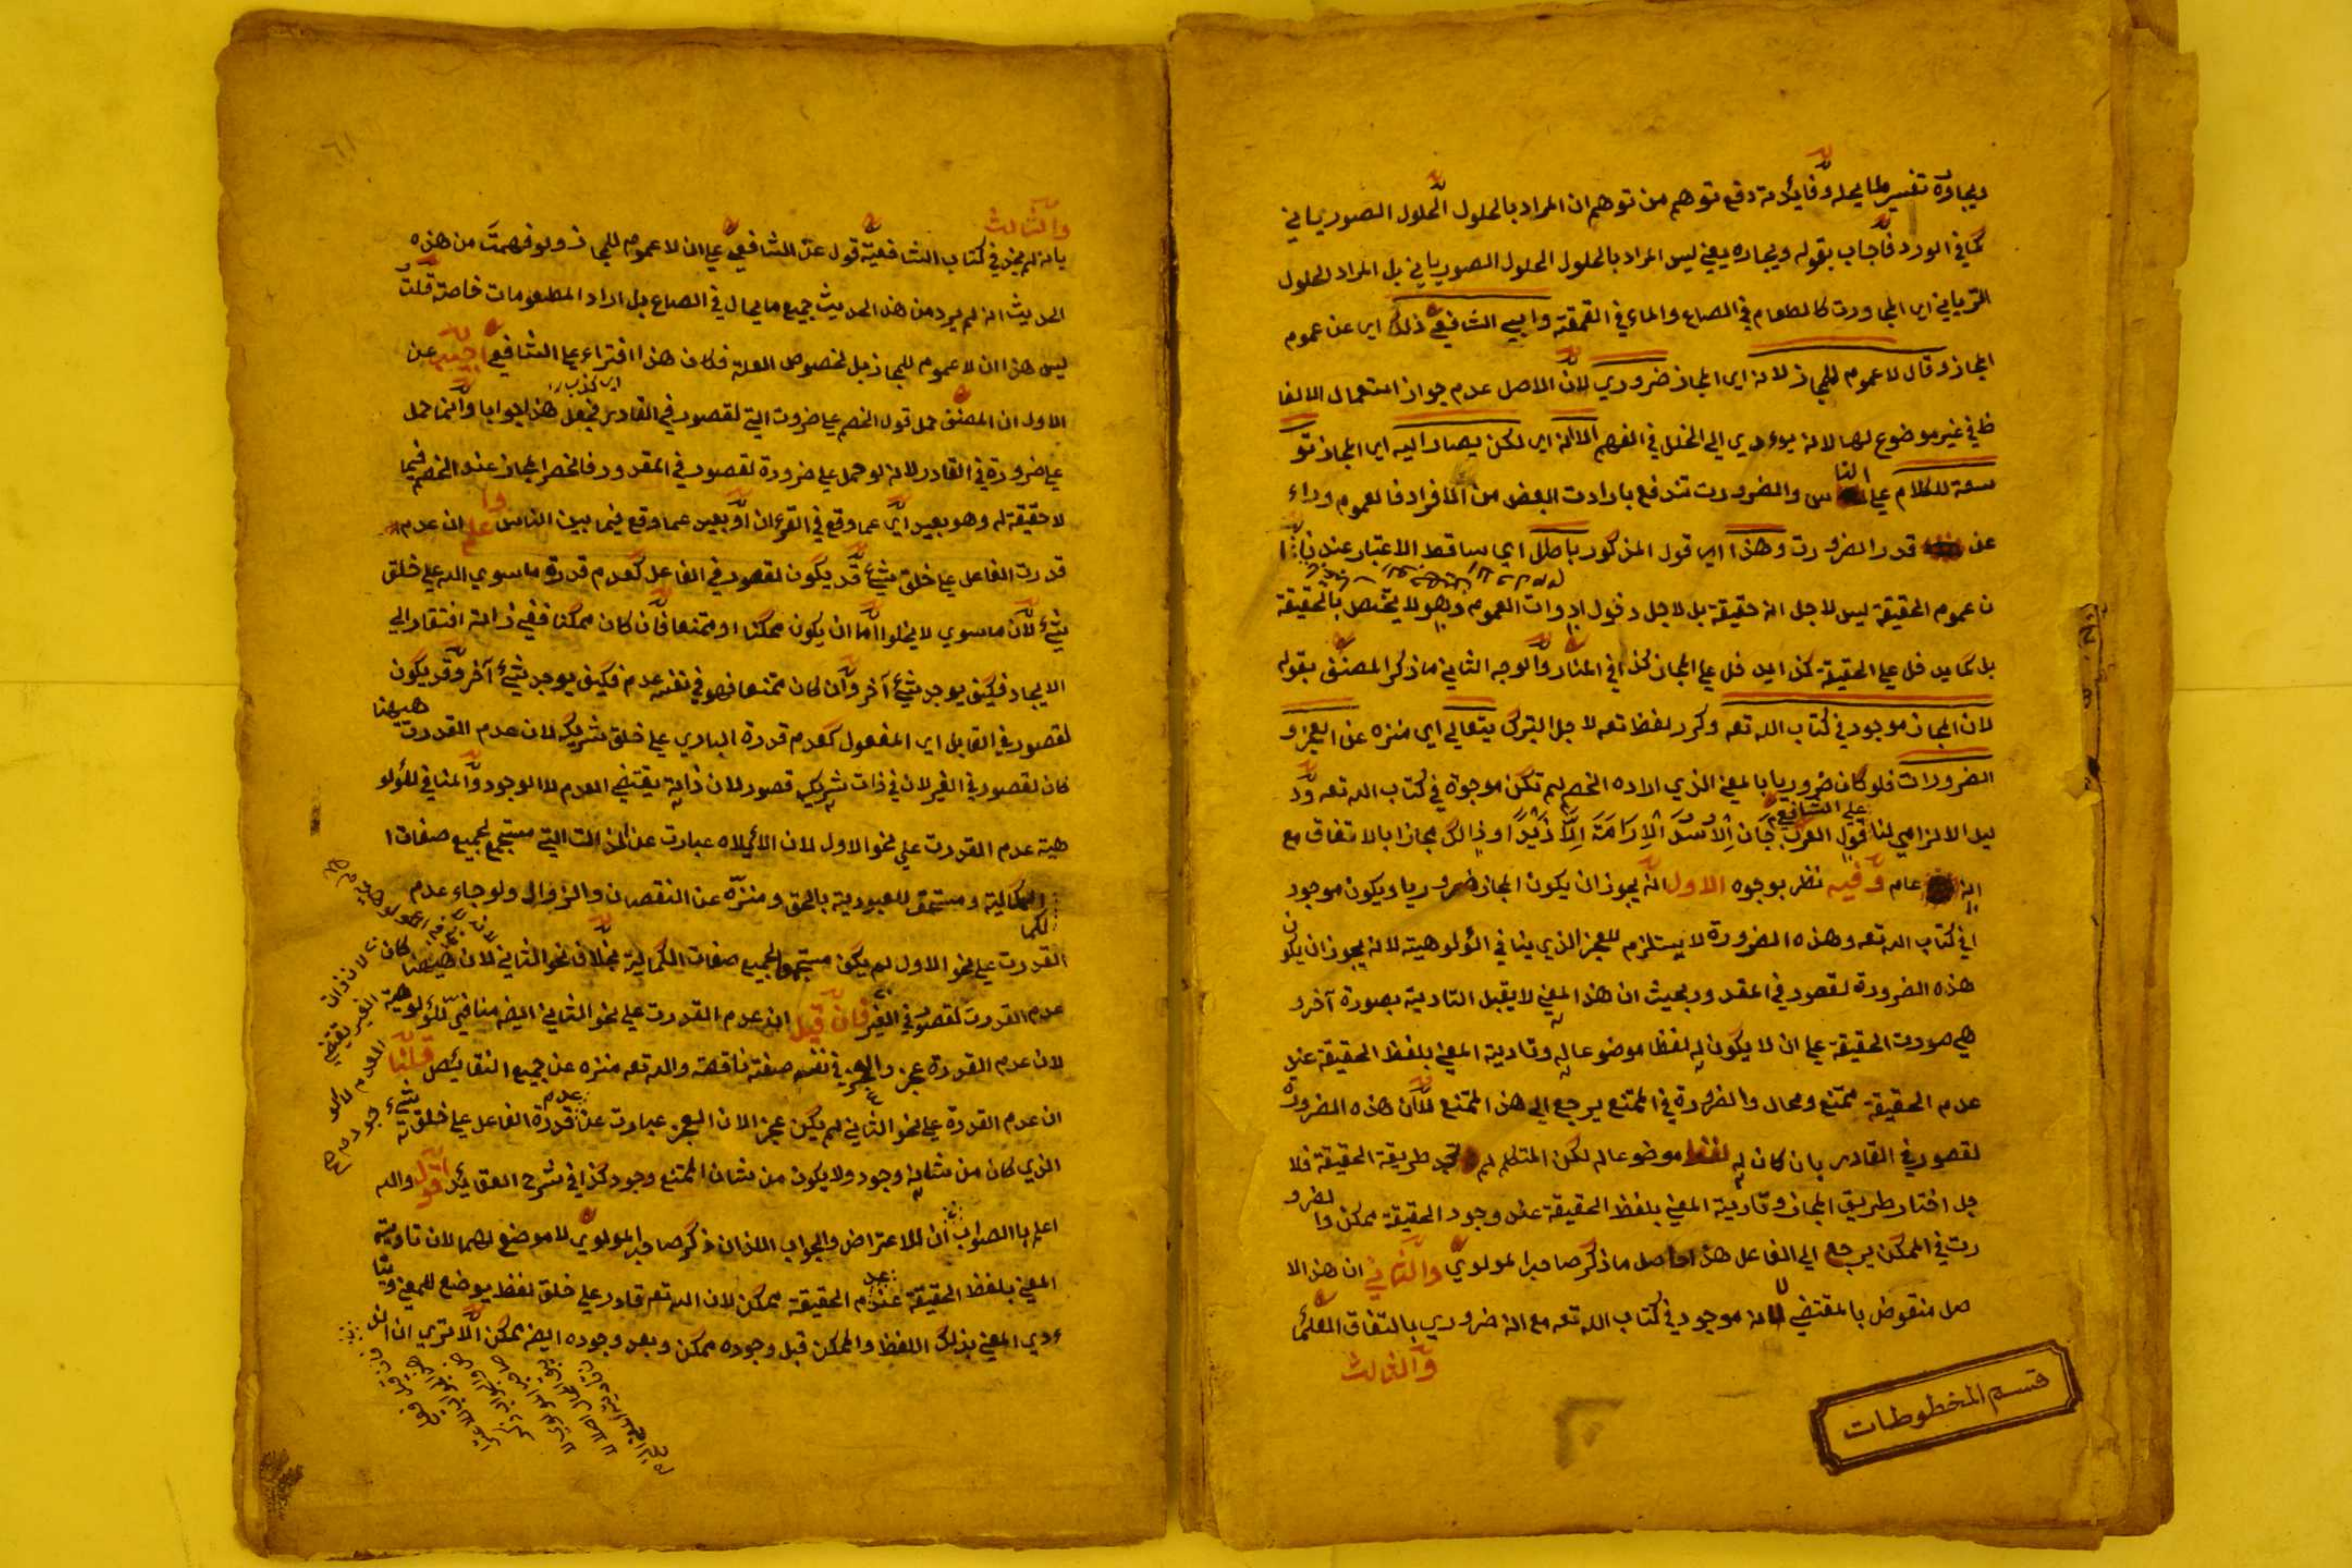 ويجاوره تفسير لما يحله وفايدته دفع توهم من توهم ان المراد بالحلول الحلول الصورياني
كما في الورد فاجاب بقوله ويجاوره يعني ليس المراد بالحلول الحلول الصورياني بل المراد لحلول
اي المجاورت كالطعام في الصاع والماء في القمقمة وابي الشافعي ذلك اي عن عموم
المجاز وقال لا عموم للمجاز لانه اي المجاز ضروري لان الاصل عدم جواز استعمال الالفا
ظ في غير موضوع لها لانه يوءدي الي الخلل في الفهم الا انه اي لكن يصار اليه اي المجاز تو
سعة للكلام علي الناس والضرورت تندفع بارادت البعض من الافراد فالعموم وراء
عن قدر الضرورت وهذا اي قول المذكور باطل اي ساقط الاعتبار عندنا
ن عموم الحقيقة ليس لاجل انه حقيقة بل لاجل دخول ادوات العموم وهو لا يختص بالحقيقة
بل كما يدخل علي الحقيقة كذا يدخل علي المجاز كذا في المنار والوجه الثاني ما ذكر المصنف بقوله
لان المجاز موجود في كتاب الله تعه وكرر لفظ تعه لاجل التبرك يتعالي اي منزه عن العجز و
الضرورات فلو كان ضروريا بالمعني الذي اراده الخصم لم تكن موجوة في كتاب الله تعه ود
علي الشافعي
ليل الالزامي لنا قول العرب جَان الاُسُدَ الاِرَامَةَ اِلَّا زَيْدًا وذالك مجازا بالاتفاق مع
انه عام وفيه نظر بوجوه الاول انه يجوز ان يكون المجاز ضروريا ويكون موجود
ا في كتاب الله تعه وهذه الضرورة لا يستلزم للعجز الذي ينافي الؤلوهية لانه يجوز ان يكون
هذه الضرورة لقصور في المقدور بحيث ان هذا المعني لا يقبل التادية بصورة آخر و
هي صورت الحقيقة علي ان لا يكون له لفظا موضوعا له وتادية المعني بلفظ الحقيقة عند
عدم الحقيقة ممتنع ومحال والضرورة في الممتنع يرجع الي هذا الممتنع لان هذه الضرورة
لقصور في القادر بان كان له لفظ موضوعا له لكن المتكلم لم يجد طريقة الحقيقة فلا
جل اختار طريق المجاز وتادية المعني بلفظ الحقيقة عند وجود الحقيقة ممكن والضرو
رت في الممكن يرجع الي الفاعل هذا حاصل ما ذكر صاحب المولوي والثاني ان هذا الا
صل منقوض بالمقتضي لانه موجود في كتاب الله تعه مع انه ضروري بالتفاق العلمآ
والثالث
قسم المخطوطات
والثالث
بانه لم يجز في كتاب الشافعية قول عن الشافعي علي ان لا عموم للمجاز ولو فهمت من هذه
الحديث انه لم يرد من هذا الحديث جميع ما يحال في الصاع بل اراد المطعومات خاصته قلت
ليس هذا ان لا عموم للمجاز بل لخصوص العلة فكان هذا افتراء علي الشافعي اجيب عن
الاول ان المصنف حمل قول الخصم علي ضرورت التي لقصور في القادر فجعل هذا جوابا وانما حمل
علي ضرورة في القادر لانه لو حمل علي ضرورة لقصور في المقدور فانحصر المجاز عند الخصم فيما
لا حقيقة له وهو بعيد اي عما وقع في القرءان او بعيد عما وقع فيما بين الناس واعلم ان عدم
قدرت الفاعل علي خلق شيء قد يكون لقصور في الفاعل كعدم قدرة ما سوي الله علي خلق
شيء لان ما سوي لا يخلوا اما ان يكون ممكنا او ممتنعا فان كان ممكنا ففي ذاته افتقار الي
الايجاد فكيف يوجد شيء آخر وان كان ممتنعا فهو في نفسه عدم فكيف يوجد شيء آخر وقد يكون
لقصور في القابل اي المفعول كعدم قدرة الباري علي خلق شريك لان عدم القدرت ههنا
كان لقصور في الغير لان في ذات شريك قصور لان ذاته يقتضي العدم لا الوجود والمنافي للؤلو
هية عدم القدرت علي نحو الاول لان الألاه عبارت عن الذات التي مستجمع لجميع صفات ا
الكمالية ومستحق للعبودية بالحق ومنزّه عن النقصان والزوال ولو جاء عدم
القدرت علي نحو الاول لم يكن مستجمع لجميع صفات الكمالية بخلاف نحو الثاني لان ههنا كان
عدم القدرت لقصور في الغير فان قيل ان عدم القدرت علي نحو الثاني ايضه منافي للؤلوهية
لان عدم القدرة عجز والعجز في نفسه صفته ناقصة والله تعه منزه عن جميع النقائص قلنا
ان عدم القدرة علي نحو الثاني لم يكن عجز الان العجز عبارت عن عدم قدرة الفاعل علي خلق شيء
الذي كان من شانه وجود ولا يكون من شان الممتنع وجود كذا في شرح العقائد اقول والله
اعلم باالصواب ان الاعتراض والجواب اللذان ذكر صاحب المولوي لا موضع لهما لان تادية
المعني بلفظ الحقيقة عند عدم الحقيقة ممكن لان الله تعه قادر علي خلق لفظ يوضع للمعني ويتا
ءدي المعني بذلك اللفظ والممكن قبل وجوده ممكن وبعد وجوده ايضه ممكن الا تري ان